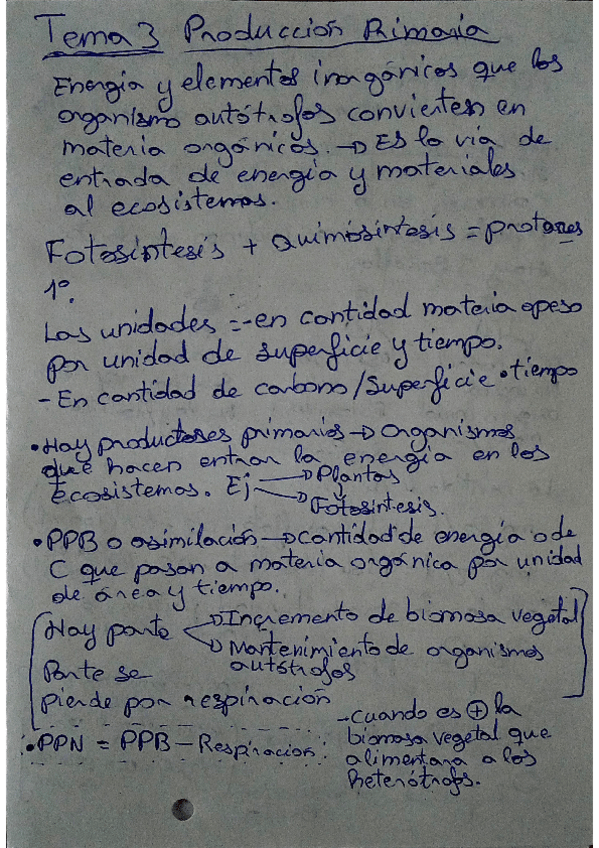 Tema 3 Producción Primaria
Energía y elementos inorgánicos que los
organismo autótrofos convierten en
materia orgánicos. → Es la vía de
entrada de energía y materiales
al ecosistemas.
Fotosíntesis + Quimiosíntesis =
1º.
Las unidades = - en cantidad materia o peso
por unidad de superficie y tiempo.
- En cantidad de carbono / Superficie · tiempo
• Hay productores primarios → Organismos
que hacen entrar la energía en los
Ecosistemas. Ej → Plantas
→ Fotosíntesis.
• PPB o asimilación → cantidad de energía o de
C que pasan a materia orgánica por unidad
de área y tiempo.
Hay parte → Incremento de biomasa vegetal
→ Mantenimiento de organismos
autótrofos
Parte se
pierde por respiración
• PPN = PPB - Respiración
- Cuando es ⊕ la
biomasa vegetal que
alimentara a los
heterótrofs.